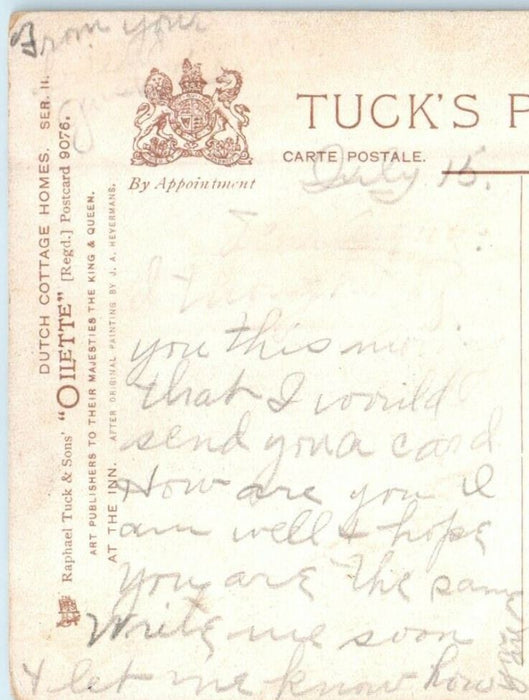 From your
TUCK'S P
CARTE POSTALE.
By Appointment
DUTCH COTTAGE HOMES. SER. II.
Raphael Tuck & Sons' "OILETTE" [Regd.] Postcard 9076.
ART PUBLISHERS TO THEIR MAJESTIES THE KING & QUEEN.
AT THE INN. AFTER ORIGINAL PAINTING BY J. A. HEYERMANS.
July 15.
I
you this
that I would
send you a card
How are you I
am well & hope
you are the same
Write me soon
& let me know how